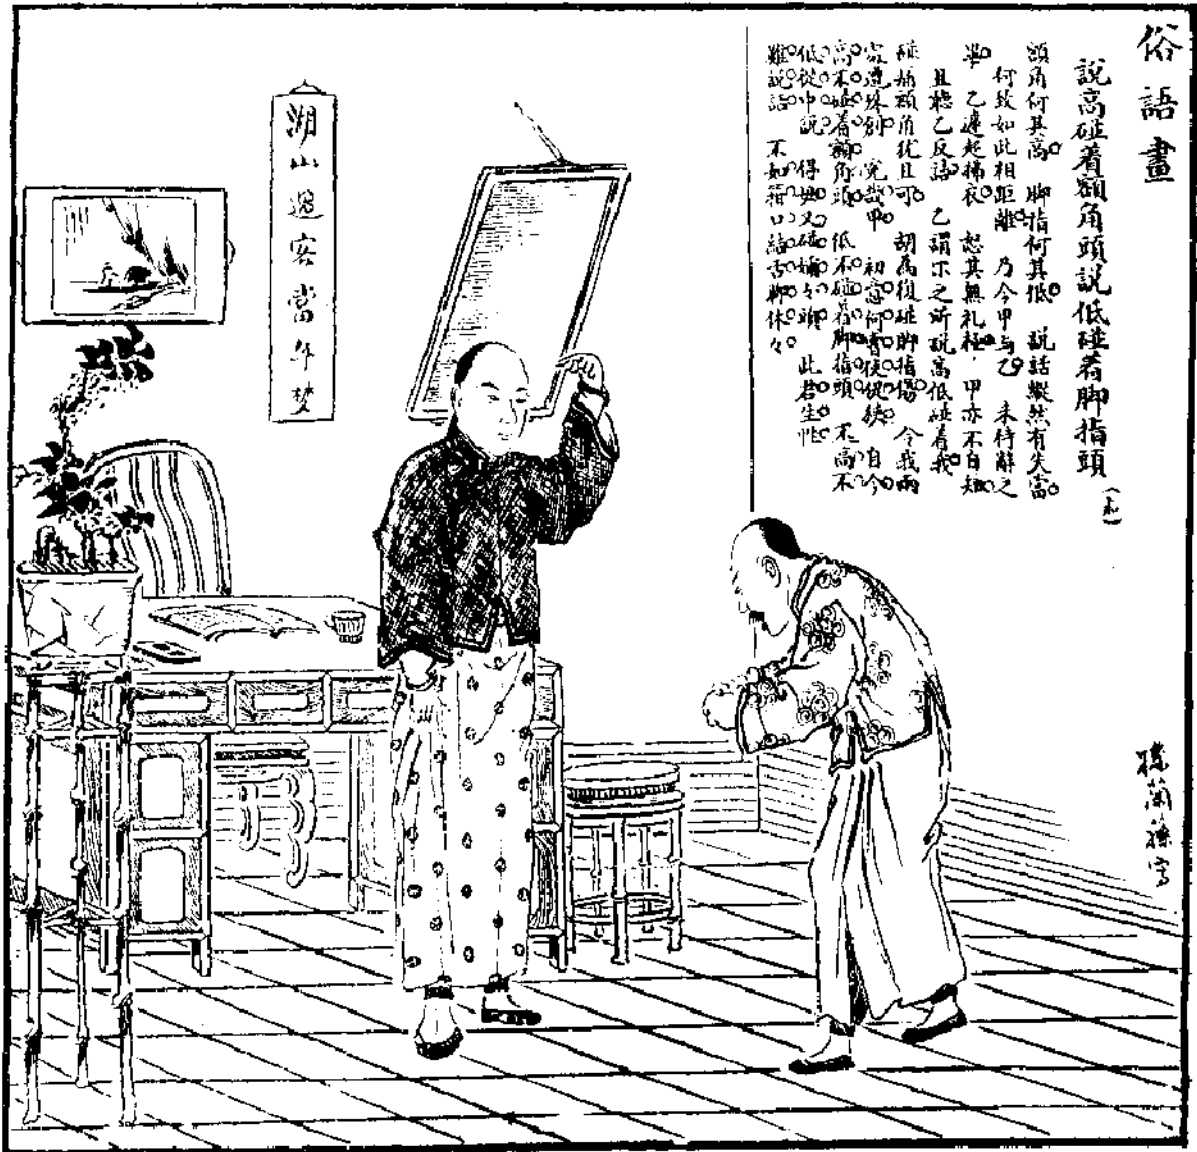 俗語畫
說高碰着額角頭說低碰着脚指頭
額角何其高 脚指何其低 說話縱然有失當
何致如此相距離 乃今甲与乙 未待辭之
畢 乙遽起拂衣 恕其無礼 甲亦不自知
且聽乙反語 乙謂尔之所說高低碰着我
碰痛額角犹且可 胡為復碰脚指傷 令我兩
處遭殊創 冤哉甲 初意何曾使促狹 自今
高不碰着額角頭 低不碰着脚指頭 不高不
低從中說 得毋又碰 々頭 此君生性
難說話 不如箝口結舌脚休々
湖山過客當年夢
孫蘭蓀寫